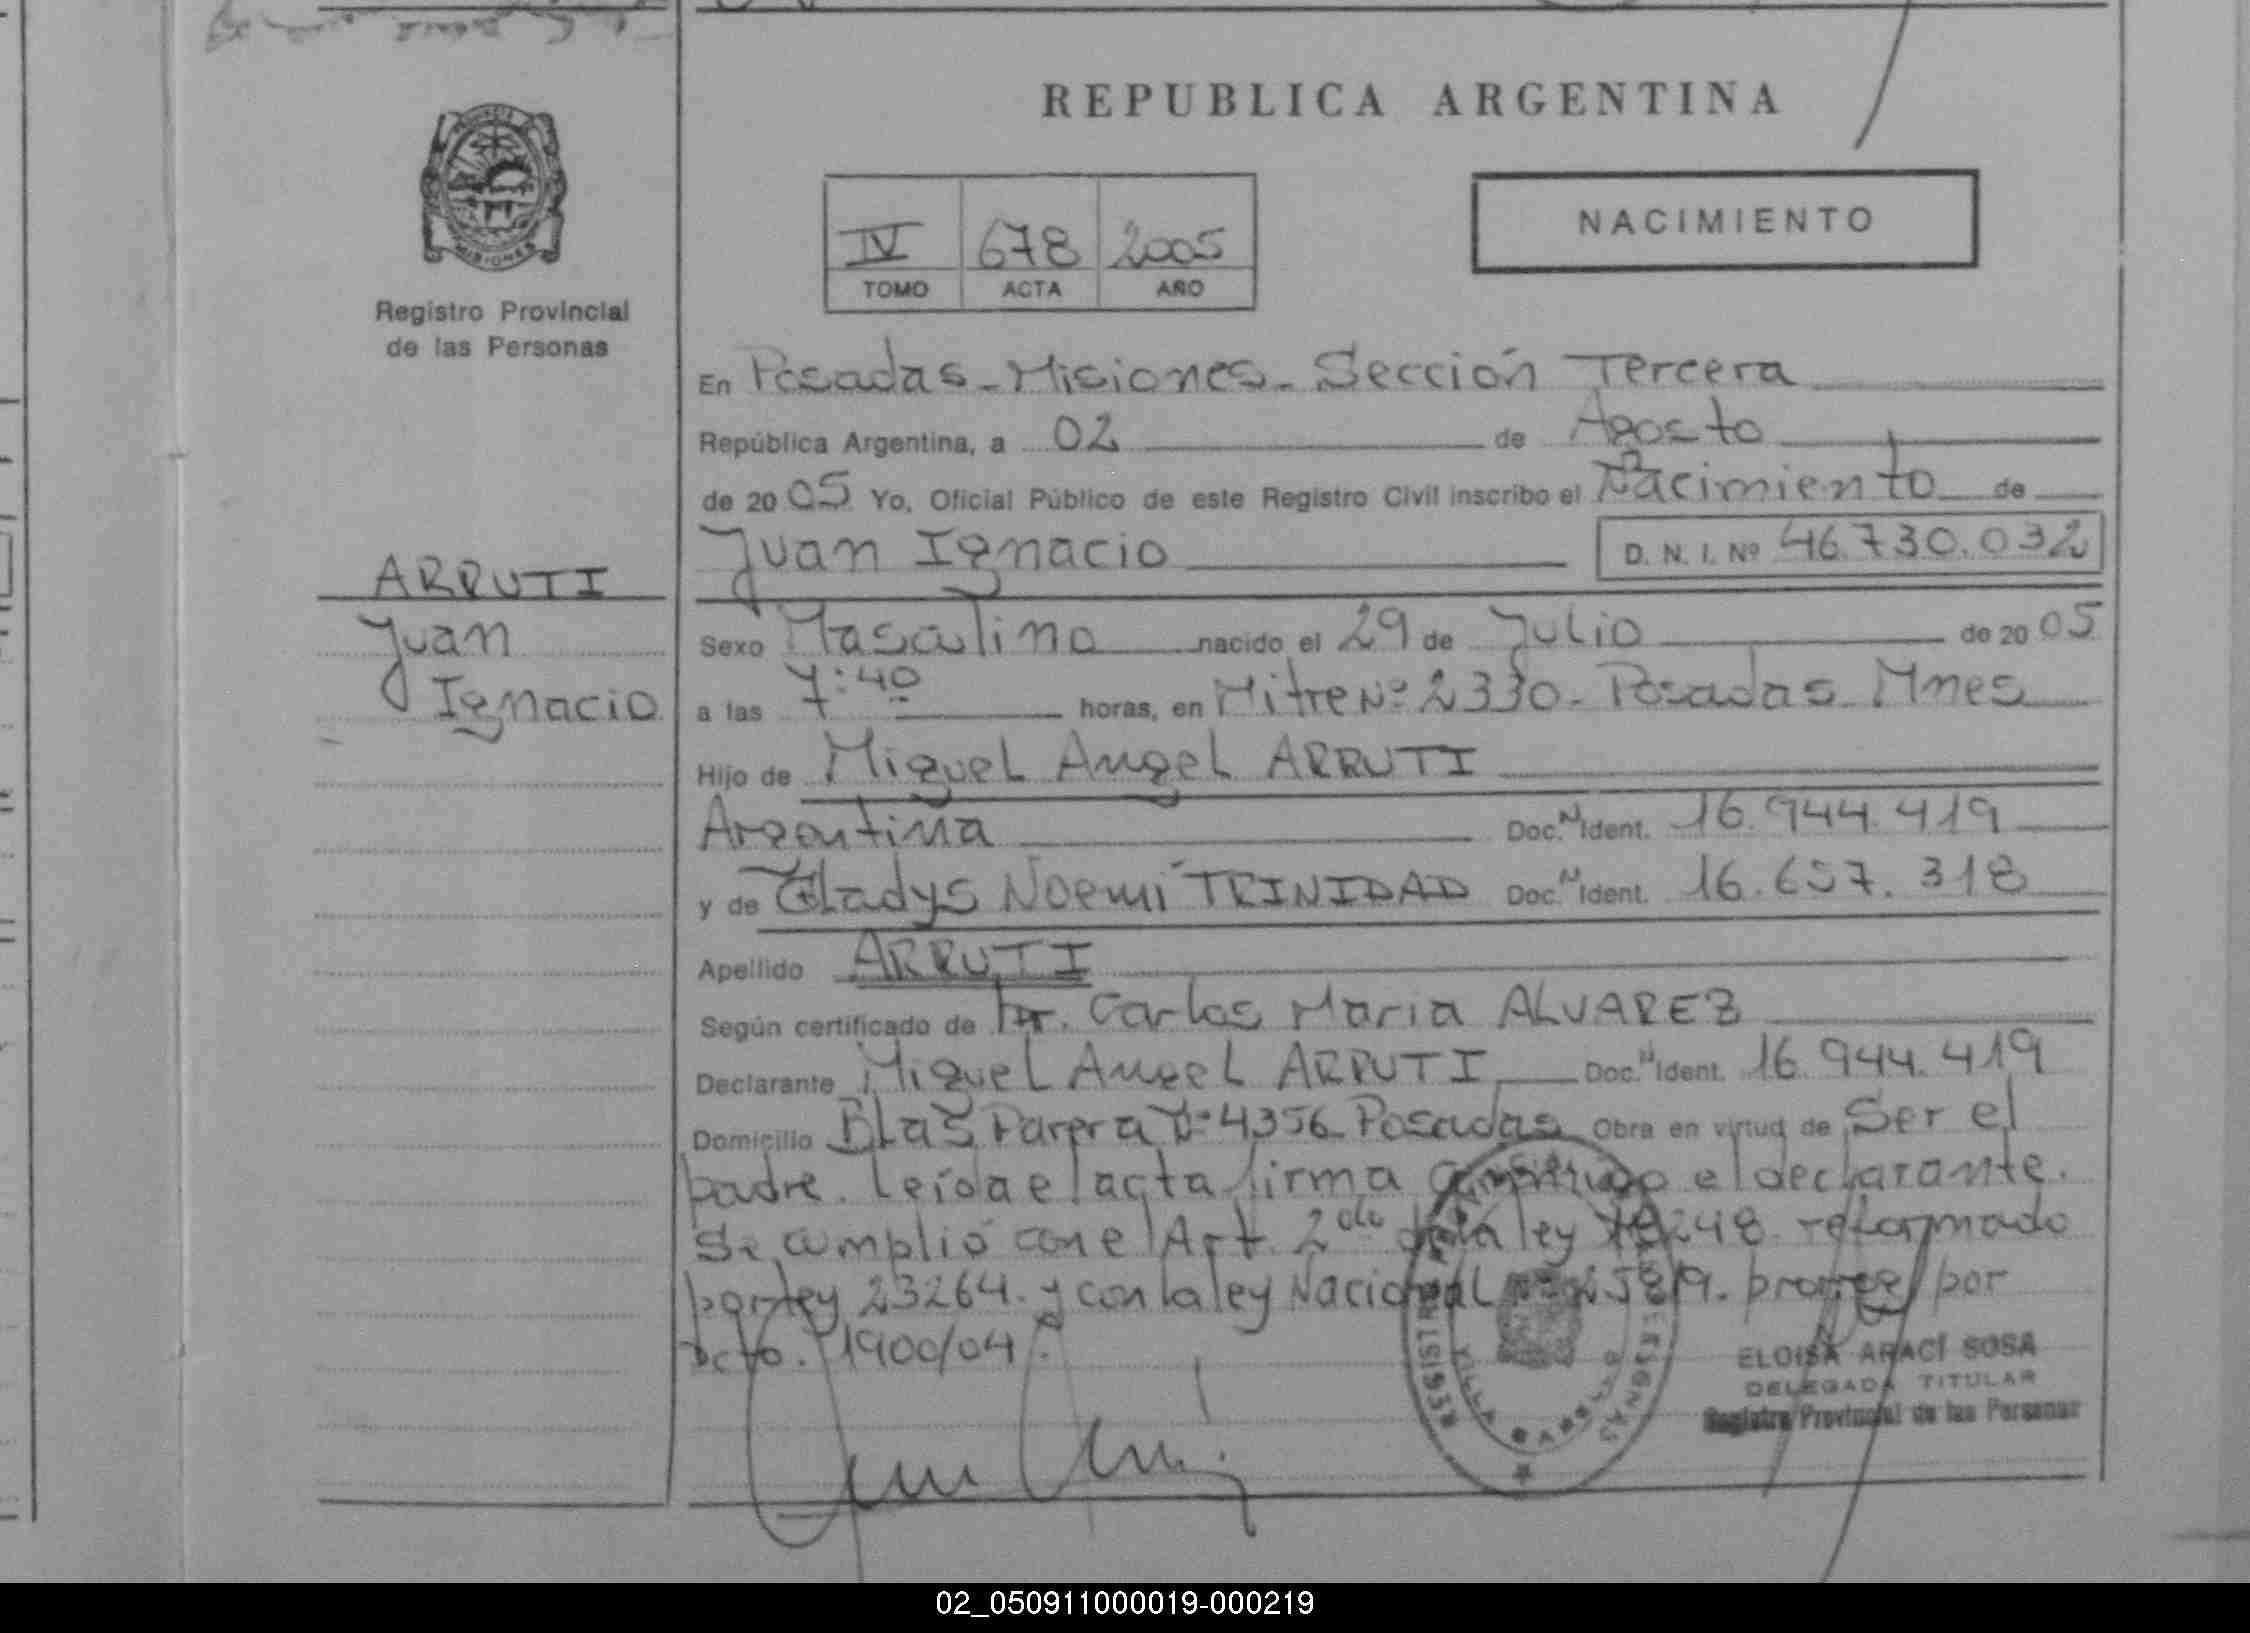 REPUBLICA ARGENTINA
NACIMIENTO
IV 678 2005
TOMO ACTA AÑO
MISIONES
Registro Provincial
de las Personas
ARRUTI
Juan
Ignacio
En Posadas - Misiones - Sección Tercera
República Argentina, a 02 de Agosto
de 2005 Yo, Oficial Público de este Registro Civil inscribo el Nacimiento de
Juan Ignacio D. N. I. Nº 46.730.032
Sexo Masculino nacido el 29 de Julio de 2005
a las 7:40 horas, en Mitre Nº 2330 - Posadas Mnes
Hijo de Miguel Angel ARRUTI
Argentina Doc. N Ident. 16.944.419
y de Gladys Noemí TRINIDAD Doc. N Ident. 16.657.318
Apellido ARRUTI
Según certificado de Dr. Carlos Maria ALVAREZ
Declarante Miguel Angel ARRUTI Doc. N Ident. 16.944.419
Domicilio Blas Parera Nº 4356 Posadas Obra en virtud de Ser el
padre. Leída el acta firma conmigo el declarante.
Se cumplió con el Art. 2do de la ley 18248 reformado
por ley 23264. y con la ley Nacional Nº 25819. prorrog por
Dcto. 1900/04.
REGISTRO PERSONAS
VILLA CABELLO
ELOISA ARACÍ SOSA
DELEGADA TITULAR
Registro Provincial de las Personas
02_050911000019-000219